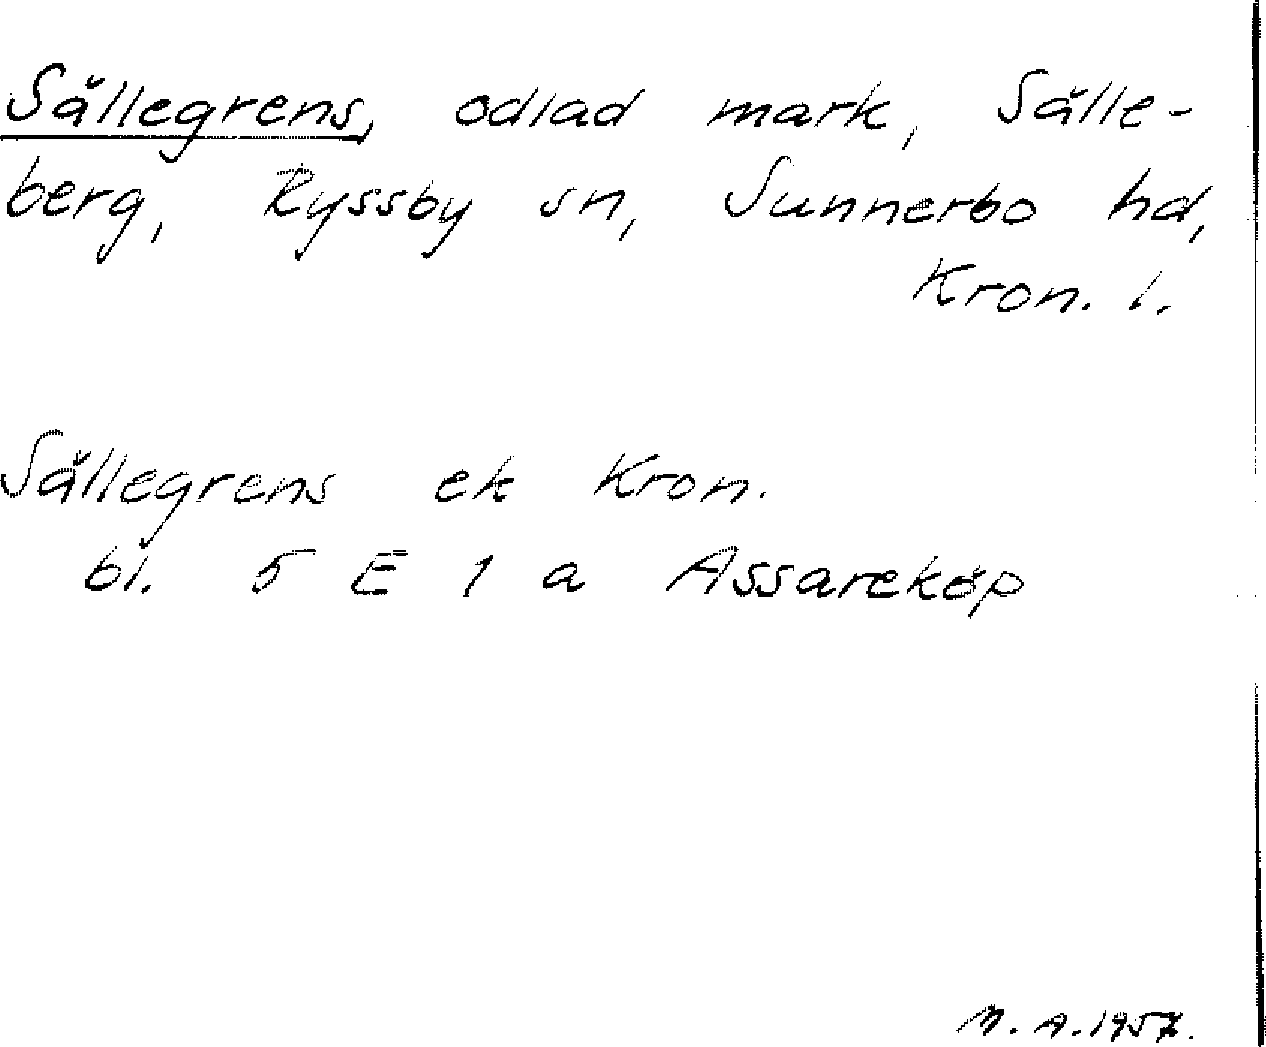 Sållegrens, odlad mark, Sålle-
berg, Ryssby sn, Sunnerbo hd,
Kron. l.
Sållegrens ek Kron.
bl. 5 E 1 a Assareköp
M. A. 1957.